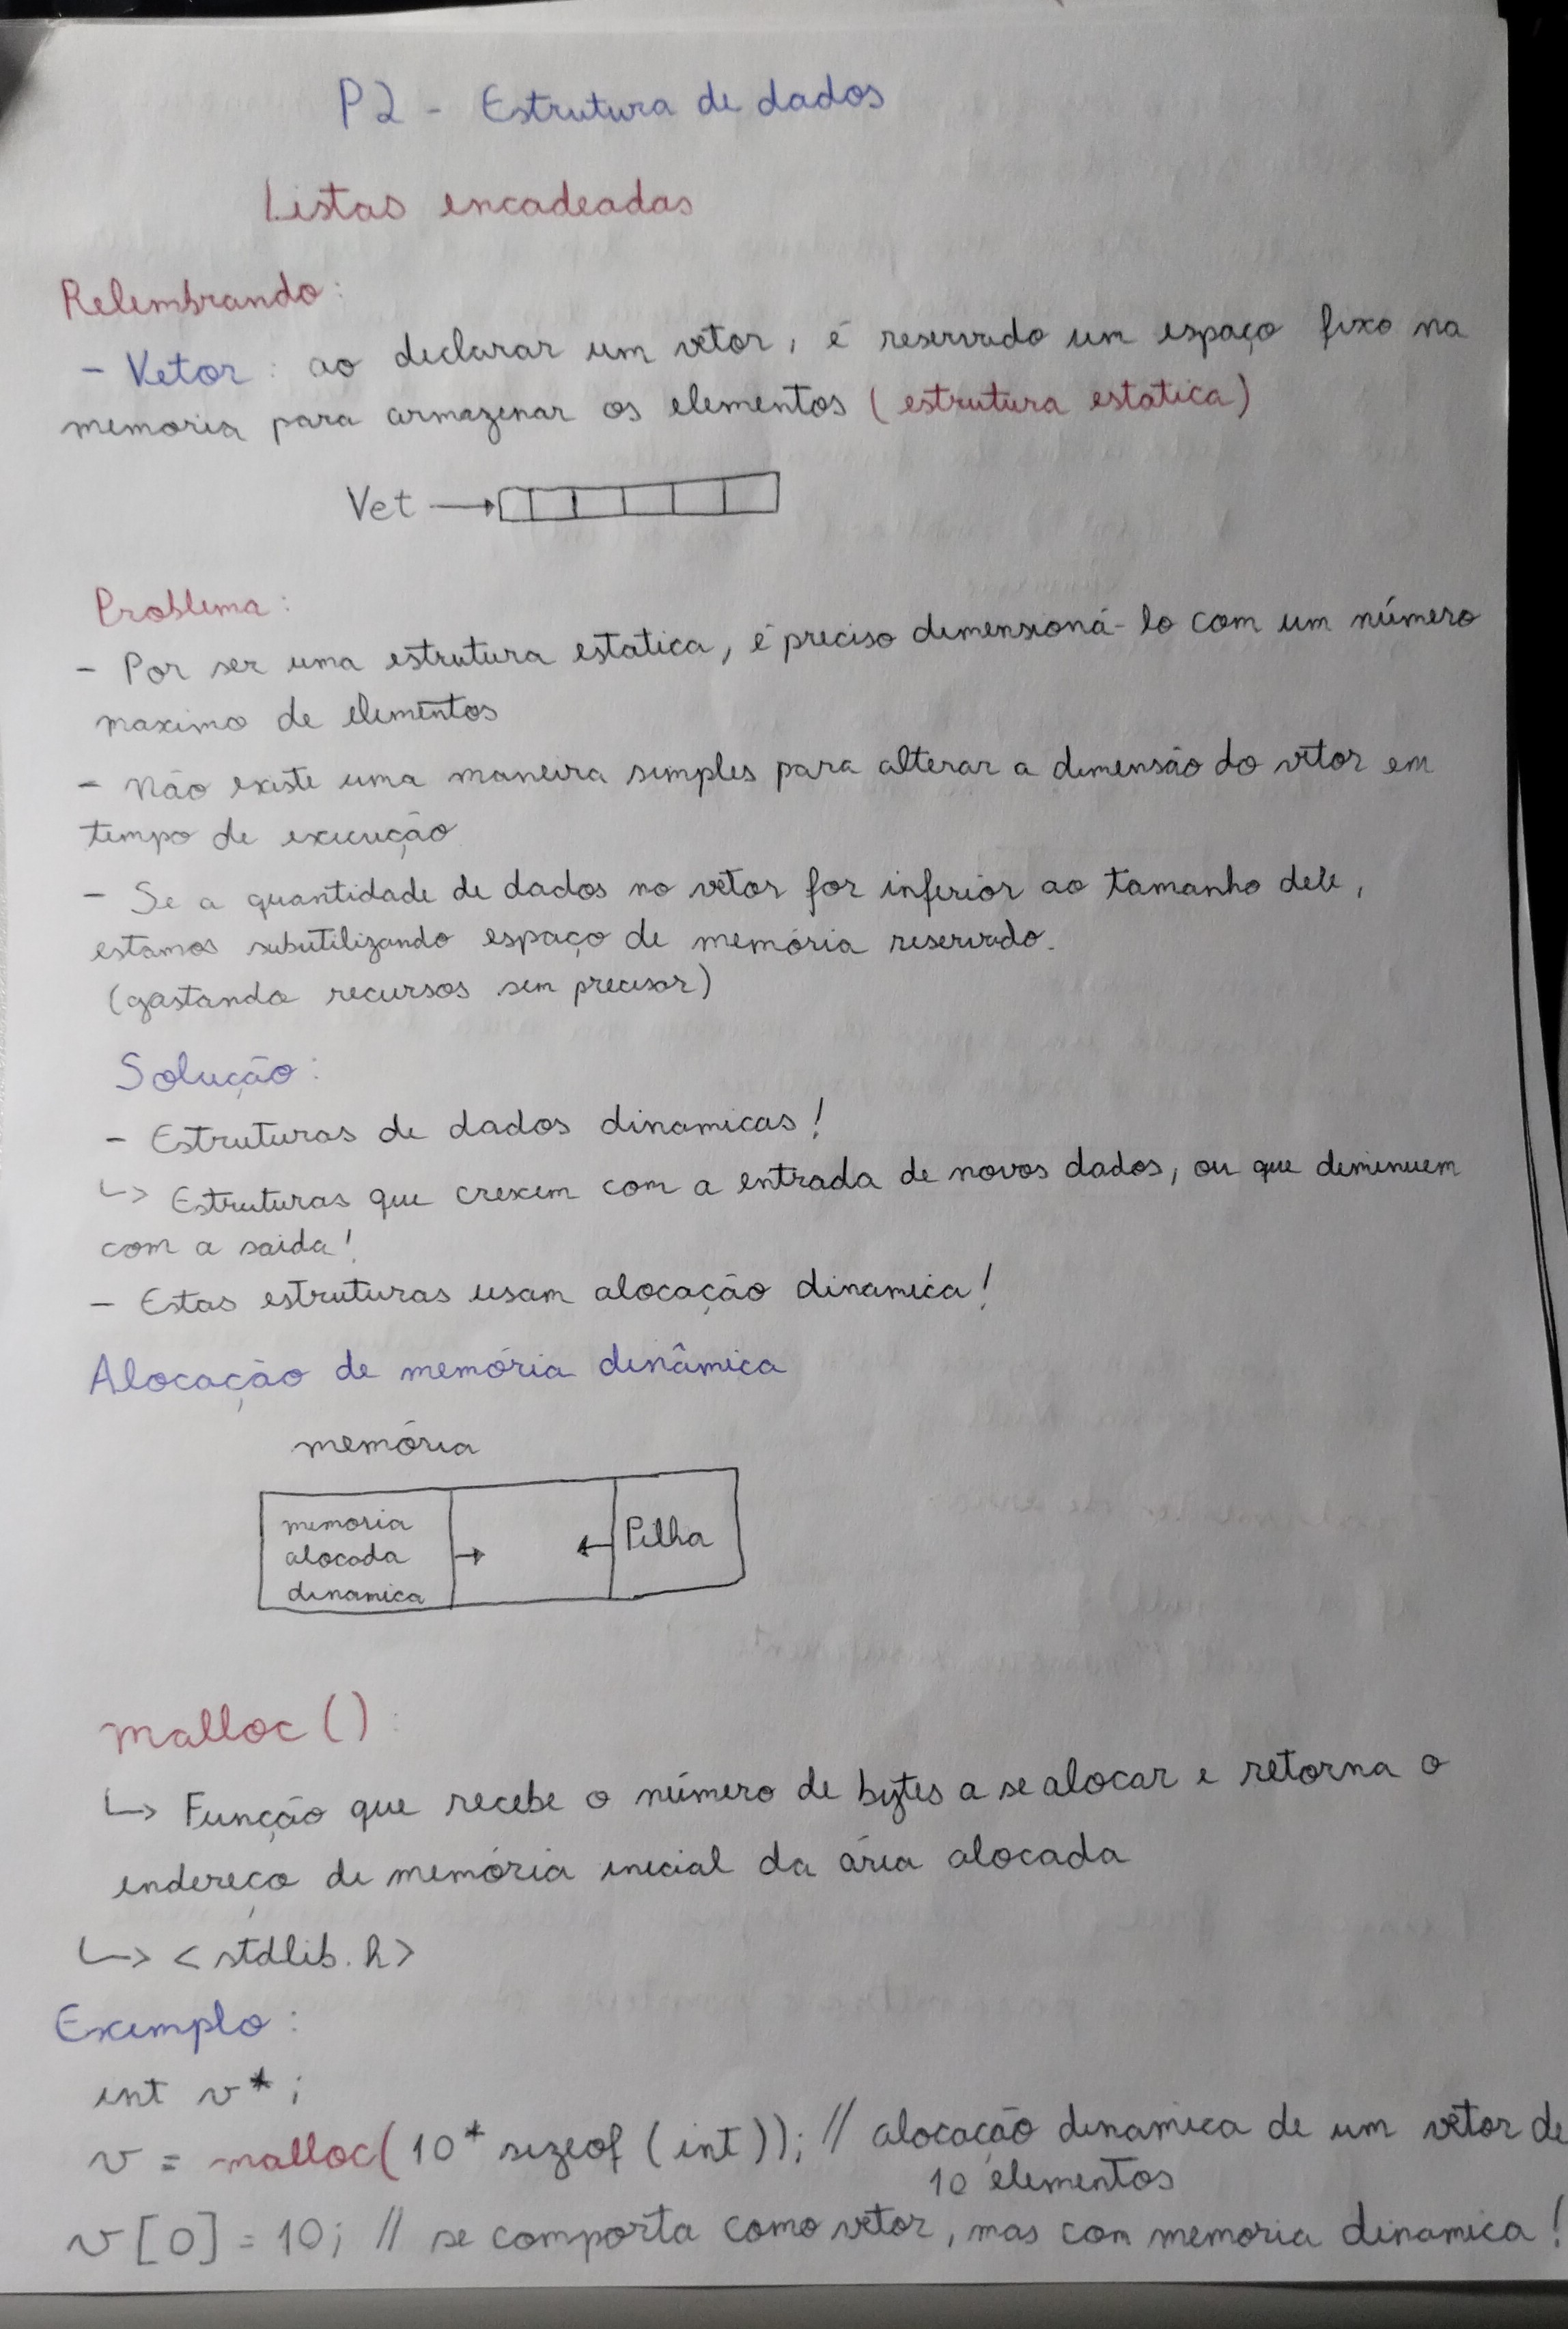 P2 - Estrutura de dados
Listas encadeadas
Relembrando:
- Vetor: ao declarar um vetor, é reservado um espaço fixo na
memoria para armazenar os elementos (estrutura estatica)
Vet
Problema:
- Por ser uma estrutura estatica, é preciso dimensioná-lo com um número
maximo de elementos
- Não existe uma maneira simples para alterar a dimensão do vetor em
tempo de execução
- Se a quantidade de dados no vetor for inferior ao tamanho dele,
estamos subutilizando espaço de memória reservado.
(gastando recursos sem precisar)
Solução:
- Estruturas de dados dinamicas!
↳ Estruturas que crescem com a entrada de novos dados, ou que diminuem
com a saida!
- Estas estruturas usam alocação dinamica!
Alocação de memória dinâmica
memória
memoria
alocada
dinamica
Pilha
malloc():
↳ Função que recebe o número de bytes a se alocar e retorna o
endereço de memória inicial da área alocada
↳ <stdlib.h>
Exemplo:
int v*;
v = malloc(10* sizeof (int)); // alocação dinamica de um vetor de
10 elementos
v[0] = 10; // se comporta como vetor, mas com memoria dinamica!